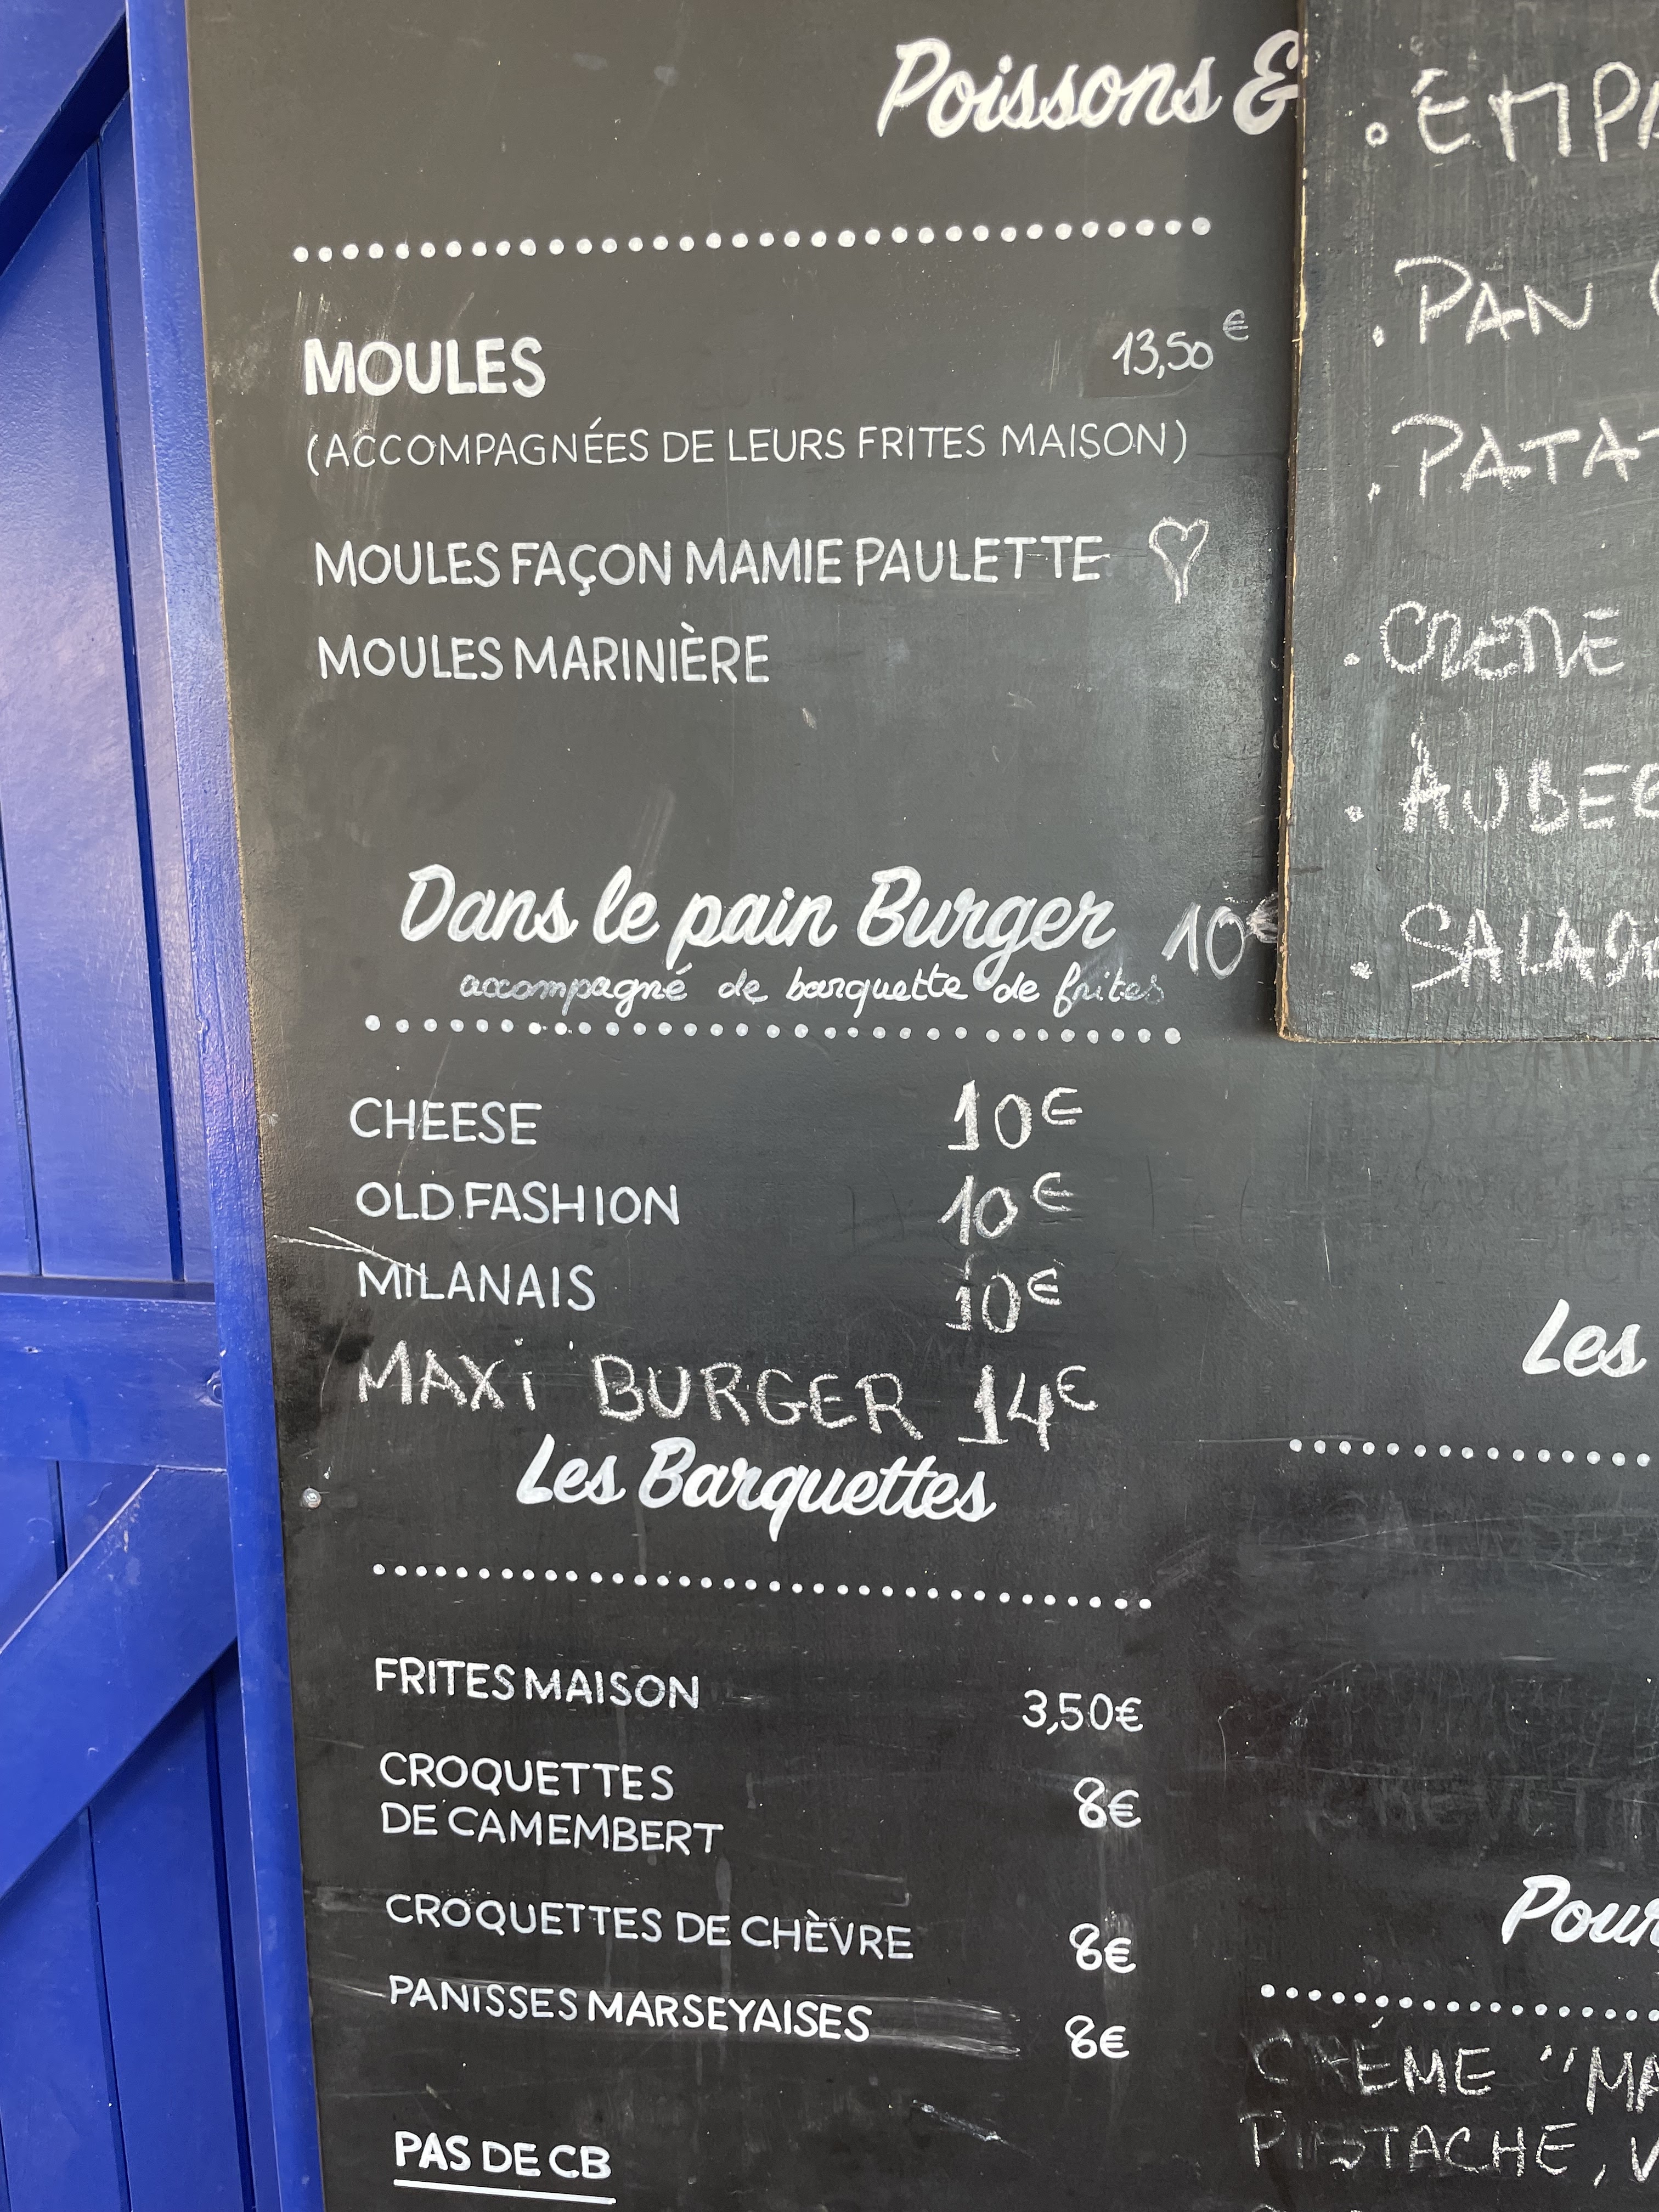 Poissons &
MOULES 13,50€
(ACCOMPAGNÉES DE LEURS FRITES MAISON)
MOULES FAÇON MAMIE PAULETTE
MOULES MARINIÈRE
Dans le pain Burger 10€
accompagné de barquette de frites
CHEESE 10€
OLD FASHION 10€
MILANAIS 10€
MAXi BURGER 14€
Les Barquettes
FRITES MAISON 3,50€
CROQUETTES
DE CAMEMBERT 8€
CROQUETTES DE CHÈVRE 8€
PANISSES MARSEYAISES 8€
PAS DE CB
. EMPA
. PAN
. PATAT
. CREME
. AUBER
. SALADE
Les
Pour
CRÉME "MA
PISTACHE, V